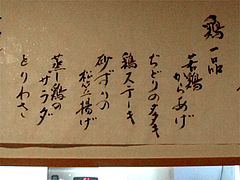 鶏一品
若鶏からあげ
ぢどりのたたき
鶏ステーキ
砂ずりの
松笠揚げ
蒸し鶏の
サラダ
とりわさ